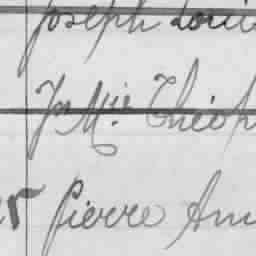 Joseph Loui
Jn Mie Théop
r Pierre Am